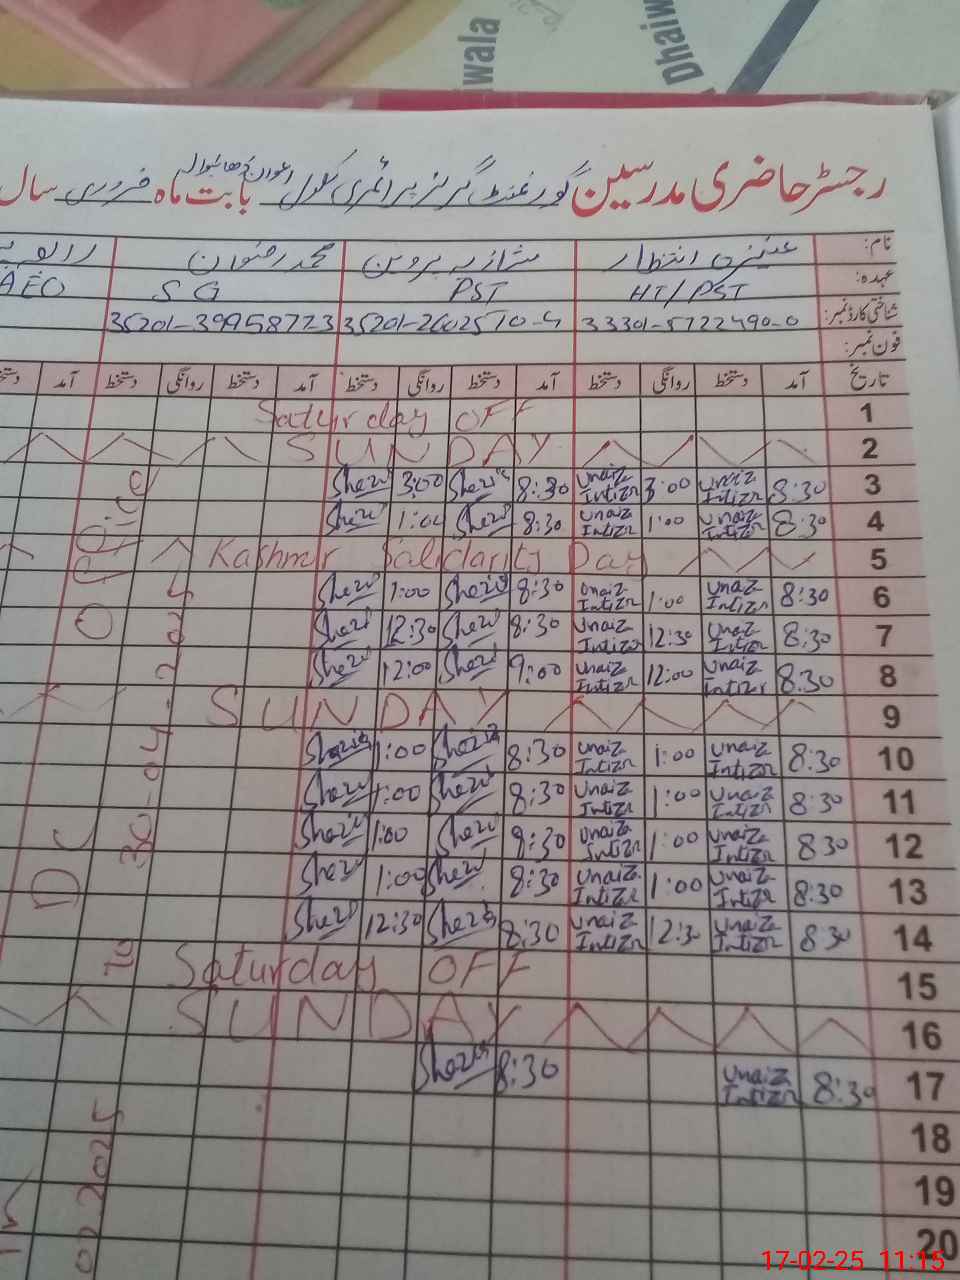 wala
Dhaiw
رجسٹر حاضری مدرسین گورنمنٹ گرلز پرائمری سکول اعوان ڈھائیوالہ بابت ماہ فروری سال
نام: عنیزہ انتظار شازیہ پروین محمد رضوان
عہدہ: HT/PST PST SG AEO
شناختی کارڈ نمبر: 33301-5722490-0 35201-2602510-4 35201-39958723
فون نمبر:
تاریخ آمد دستخط روانگی دستخط آمد دستخط روانگی دستخط آمد دستخط روانگی دستخط آمد
1 Saturday OFF
2 SUNDAY
3 8:30 Unaiza Intizr 3:00 Unaiz Intizr 8:30 Shazia 3:00 Shezi
4 8:30 Unaiz Intizr 1:00 Unaiz Intizr 8:30 Shezi 1:00 Shezi
5 Kashmir Salidarity Day
6 8:30 Unaiz Intizr 1:00 Unaiz Intizr 8:30 Shezi 1:00 Shezi
7 8:30 Unaiz Intizr 12:30 Unaiz Intizr 8:30 Shezi 12:30 Shezi
8 8:30 Unaiz Intizr 12:00 Unaiz Intizr 9:00 Shezi 12:00 Shezi
9 SUNDAY
10 8:30 Unaiz Intizr 1:00 Unaiz Intizr 8:30 Shezi 1:00 Shezi
11 8:30 Unaiz Intizr 1:00 Unaiz Intizr 8:30 Shezi 1:00 Shezi
12 8 30 Unaiz Intizr 1:00 Unaiz Intizr 8:30 Shezi 1:00 Shezi
13 8:30 Unaiz Intizr 1:00 Unaiz Intizr 8:30 Shezi 1:00 Shezi
14 8 30 Unaiz Intizr 12:30 Unaiz Intizr 8:30 Shezi 12:30 Shezi
15 Saturday OFF
16 SUNDAY
17 8:30 Unaiz Intizr 8:30 Shezi
18
19
20
Office
30-04-2024
To
2025
17-02-25 11:15